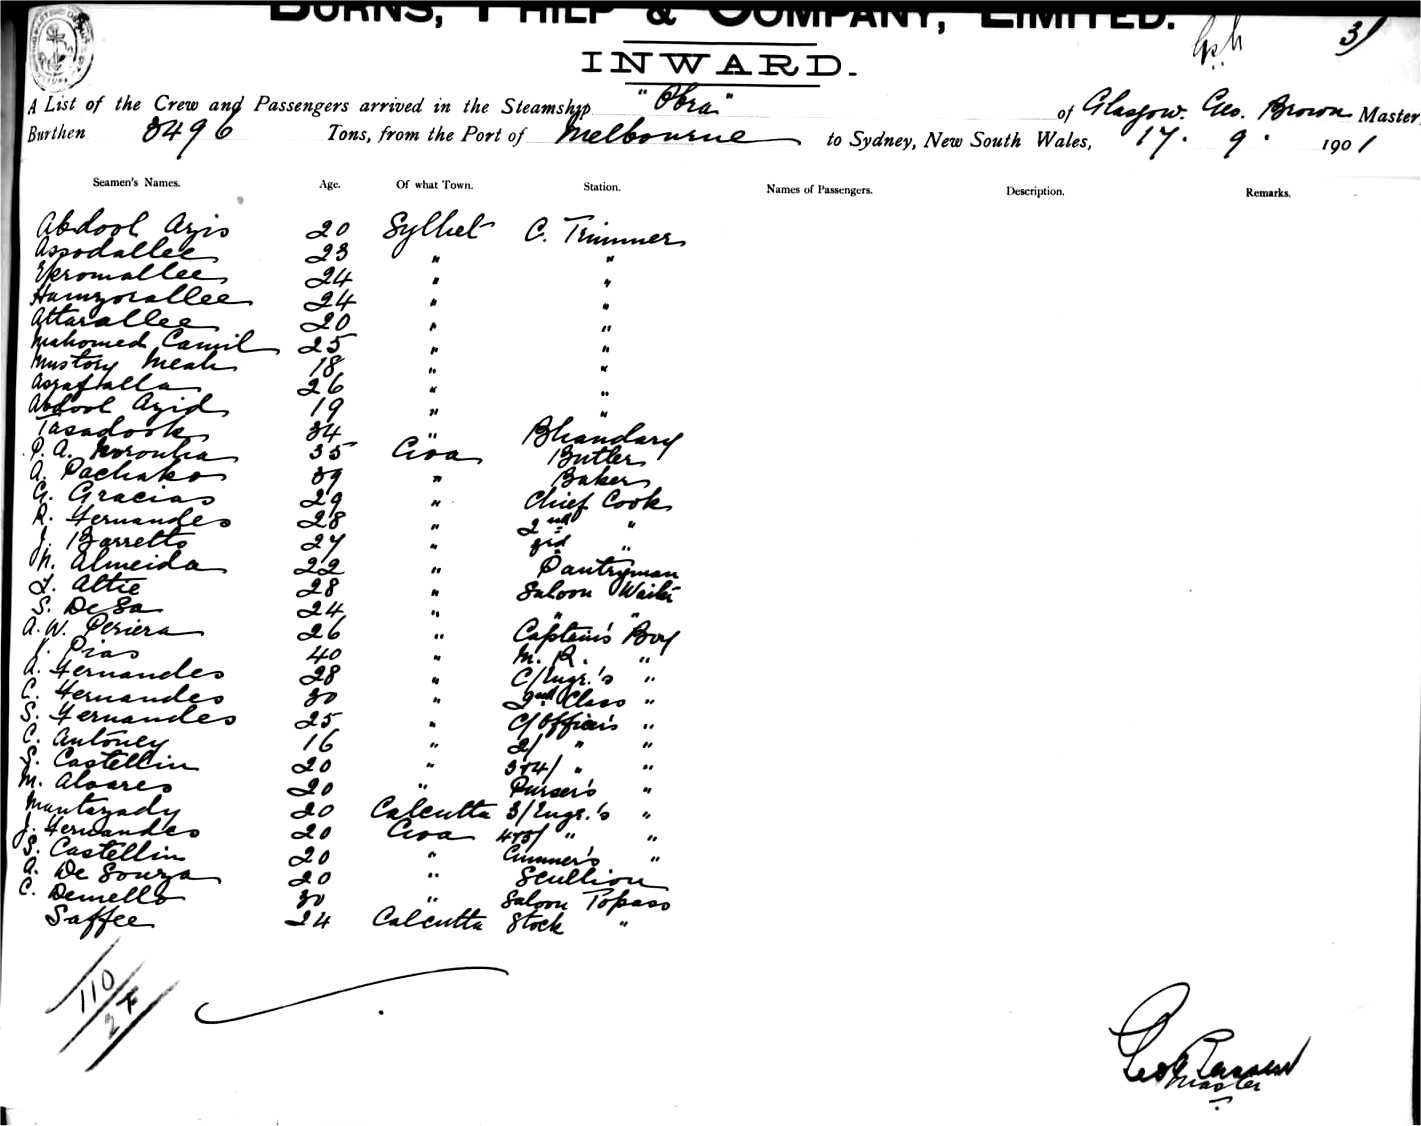 BURNS, PHILP & COMPANY, LIMITED.
3/
INWARD.
A List of the Crew and Passengers arrived in the Steamship "Obra" of Glasgow. Geo. Brown Master
Burthen 3496 Tons, from the Port of Melbourne to Sydney, New South Wales, 17. 9. 1901
Seamen's Names. Age. Of what Town. Station. Names of Passengers. Description. Remarks.
Abdool Azis 20 Sylhet C. Trimmer
Assodallee 23 " "
Eeromallee 24 " "
Hamzorallee 24 " "
Attarallee 20 " "
Mahomed Camil 25 " "
Mustory Meah 18 " "
Asrafalla 26 " "
Abdool Azid 19 " "
Tasadook 34 " Bhandary
P. A. Noronha 35 Goa Butler
A. Pacheko 39 " Baker
G. Gracias 29 " Chief Cook
R. Fernandes 28 " 2nd "
J. Barretto 27 " 3rd "
N. Almeida 22 " Pantryman
L. Altie 28 " Saloon Waiter
S. De Sa 24 " " "
A. W. Periera 26 " Captain's Boy
J. Pias 40 " M. R. "
A. Fernandes 28 " C/Engr.'s "
C. Fernandes 30 " 2nd Class "
S. Fernandes 25 " C/Officer's "
C. Antoney 16 " 2/ " "
S. Castellin 20 " 3+4/ " "
M. Alvares 20 " Purser's "
Muntazady 20 Calcutta 3/Engr.'s "
J. Fernandes 20 Goa 4+5/ " "
S. Castellin 20 " Gunner's "
A. De Souza 20 " Scullion
C. Demello 30 " Saloon Topass
Saffee 24 Calcutta Stock "
110
Geo Brown
Master